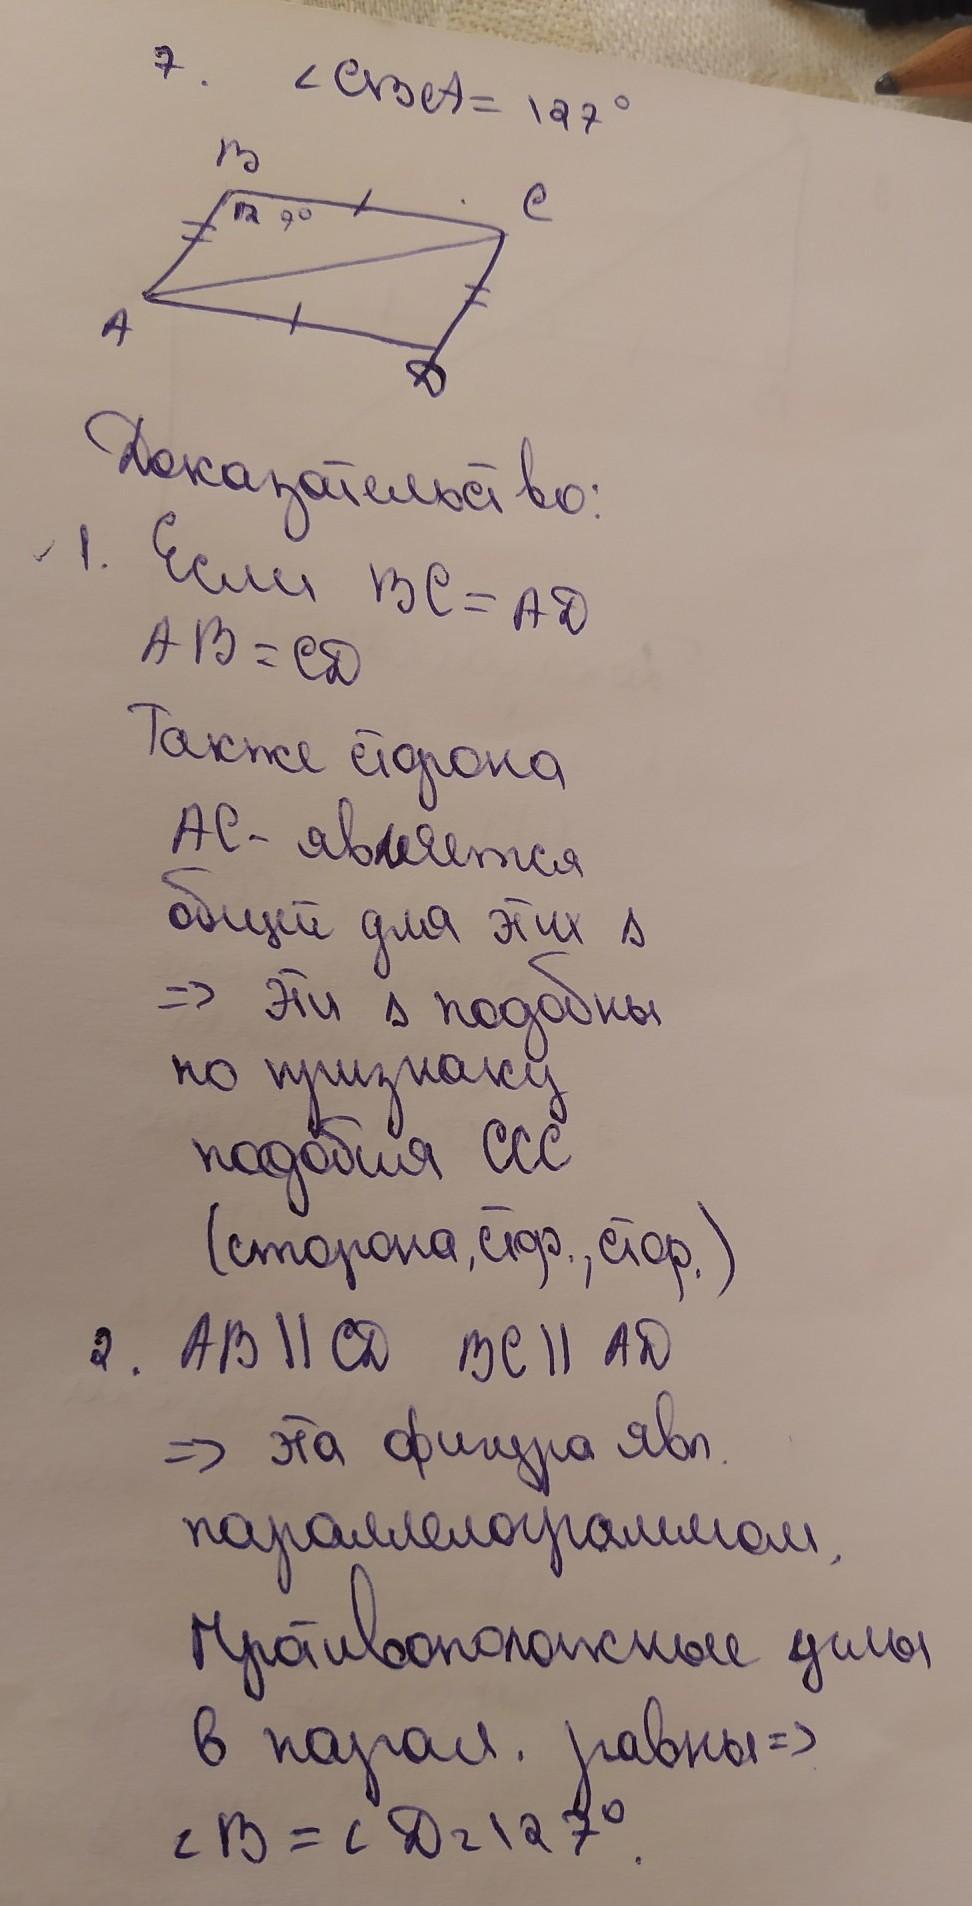 7. ∠CBA = 127°
B
C
127°
A
D
Доказательство:
1. Если BC = AD
AB = CD
Также сторона
AC - является
общей для этих Δ
=> эти Δ подобны
по признаку
подобия ССС
(сторона, стор., стор.)
2. AB || CD BC || AD
=> эта фигура явл.
параллелограммом.
Противоположные углы
в парал. равны =>
∠B = ∠D = 127°.